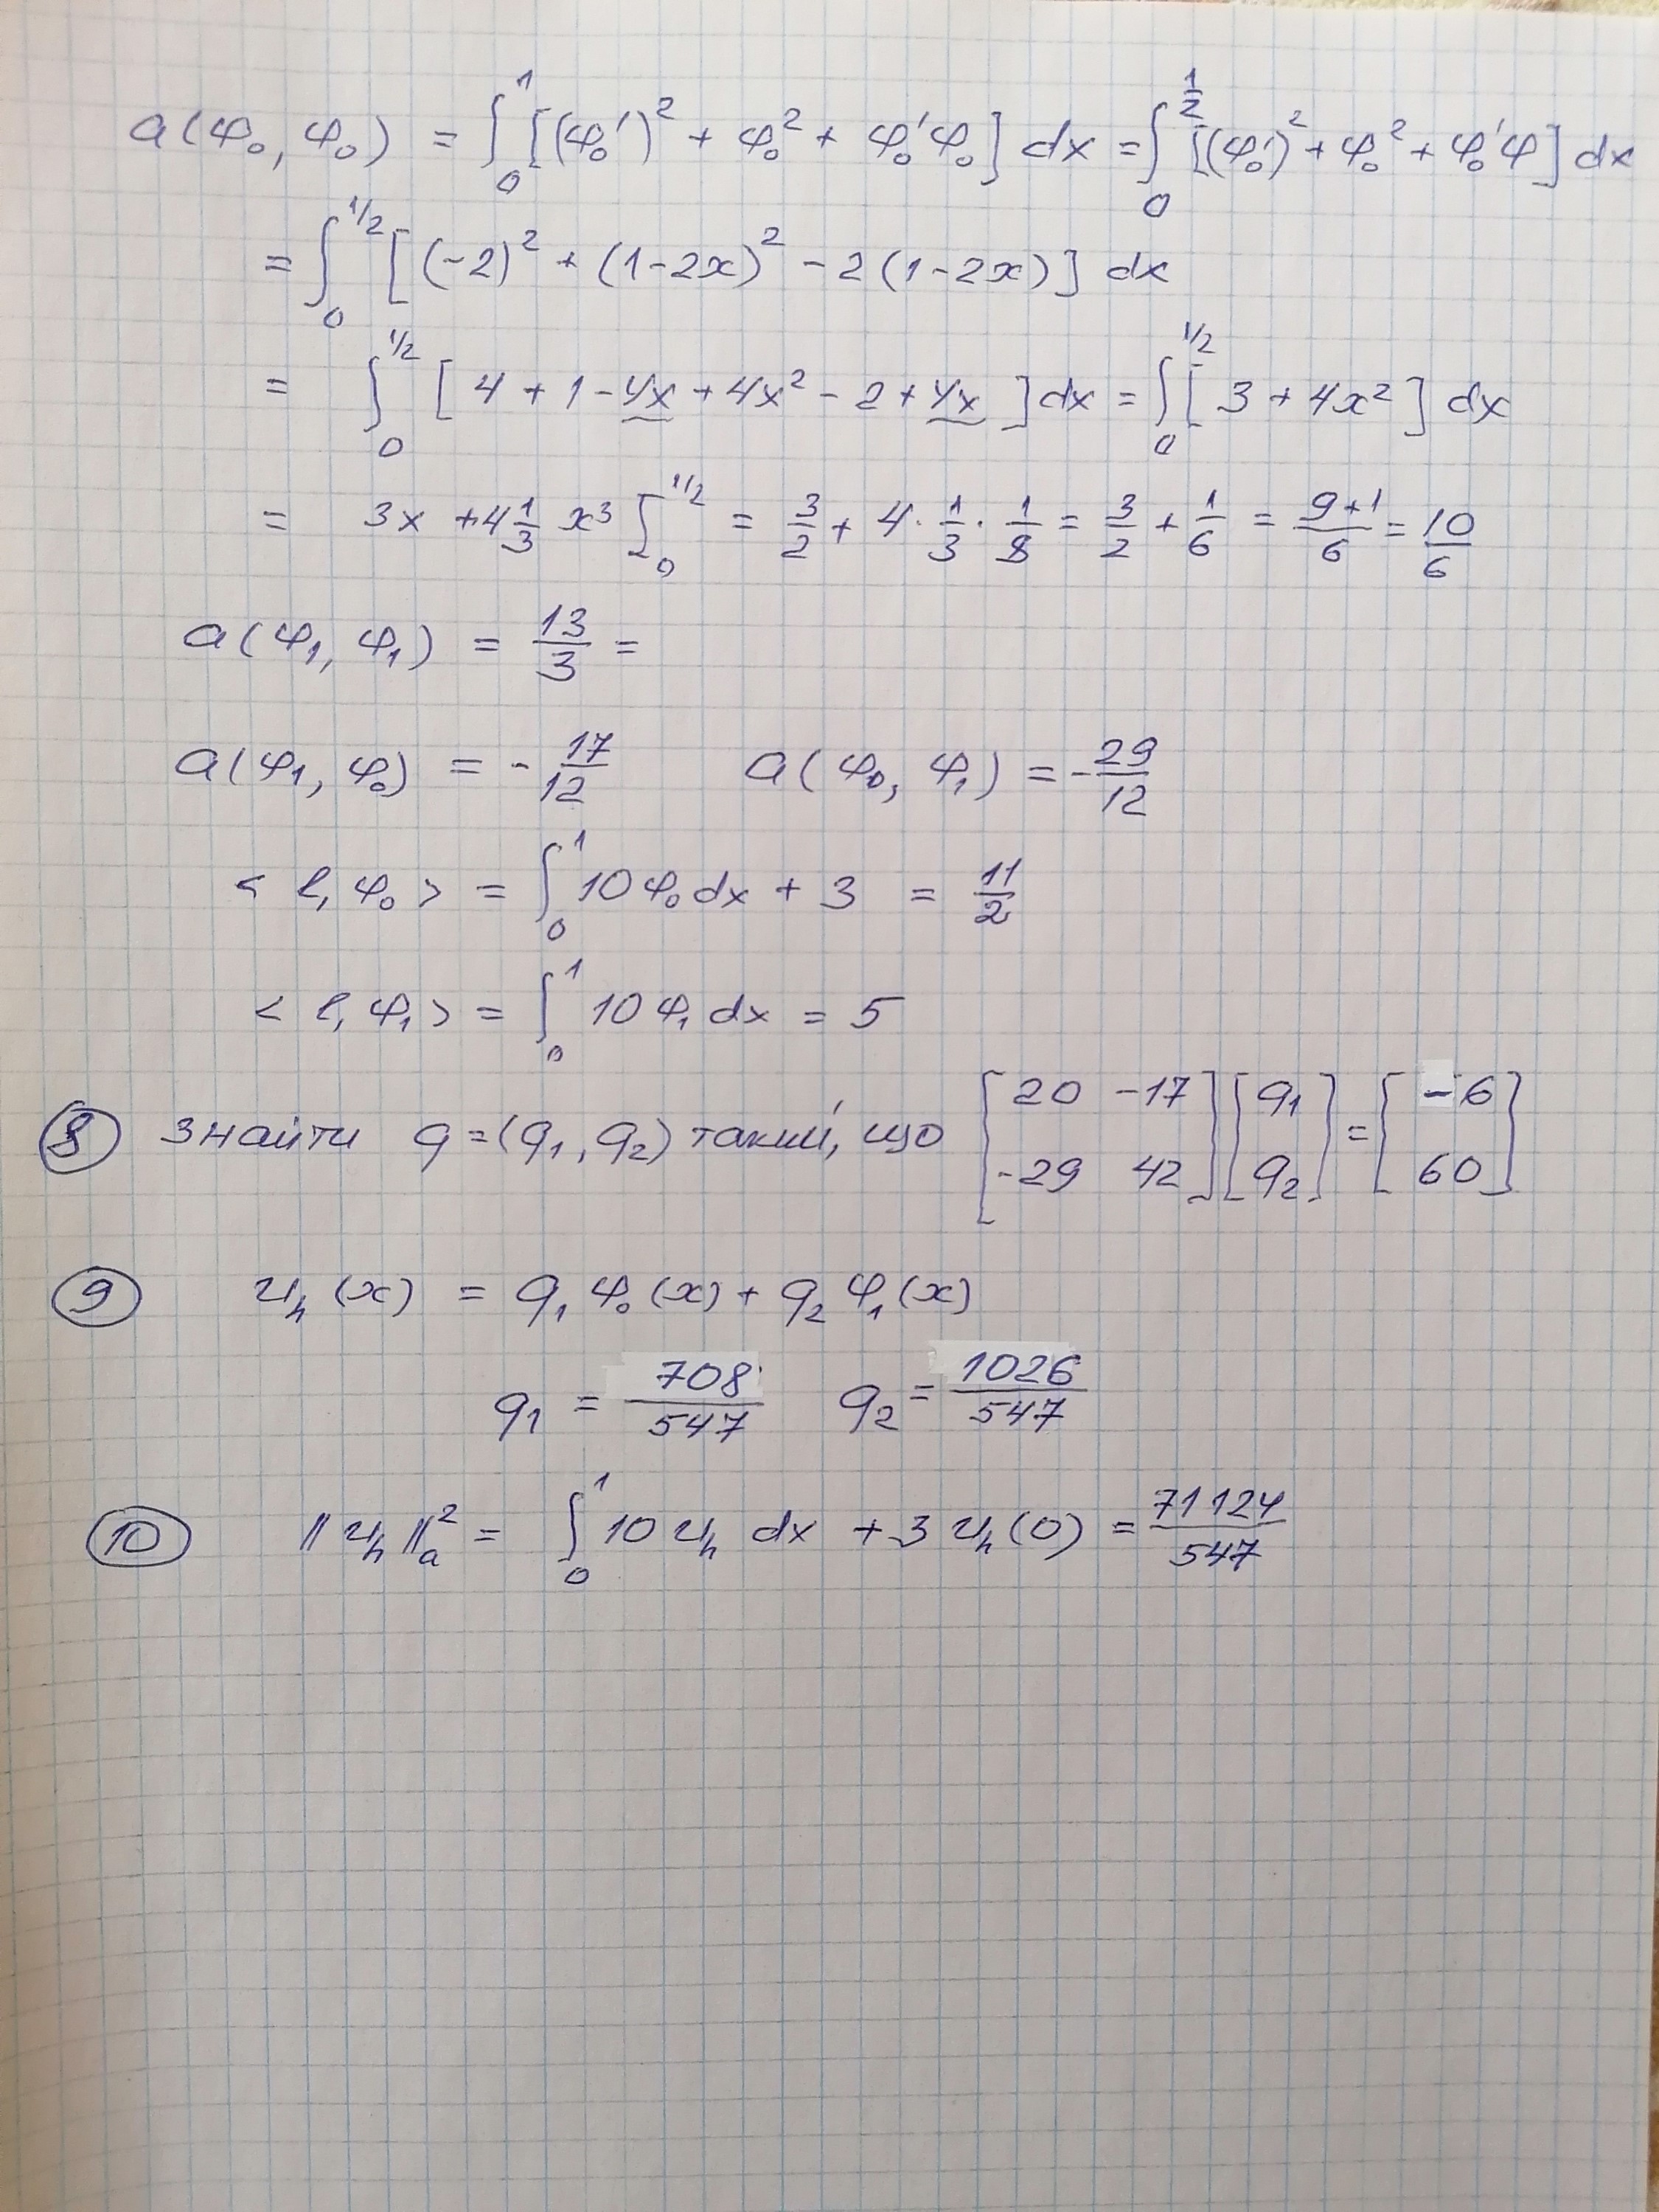 a(φ₀, φ₀) = ∫₀¹ [(φ₀')² + φ₀² + φ₀'φ₀] dx = ∫₀^{1/2} [(φ₀')² + φ₀² + φ₀'φ] dx
= ∫₀^{1/2} [(-2)² + (1-2x)² - 2(1-2x)] dx
= ∫₀^{1/2} [4 + 1 - 4x + 4x² - 2 + 4x] dx = ∫₀^{1/2} [3 + 4x²] dx
= 3x + 4 1/3 x³ ]₀^{1/2} = 3/2 + 4 · 1/3 · 1/8 = 3/2 + 1/6 = (9+1)/6 = 10/6
a(φ₁, φ₁) = 13/3 =
a(φ₁, φ₀) = - 17/12 a(φ₀, φ₁) = - 29/12
< l, φ₀ > = ∫₀¹ 10 φ₀ dx + 3 = 11/2
< l, φ₁ > = ∫₀¹ 10 φ₁ dx = 5
8 Знайти q = (q₁, q₂) такий, що [20 -17; -29 42] [q₁; q₂] = [-6; 60]
9 u_h(x) = q₁ φ₀(x) + q₂ φ₁(x)
q₁ = 708/547 q₂ = 1026/547
10 ‖u_h‖²_a = ∫₀¹ 10 u_h dx + 3 u_h(0) = 71124/547